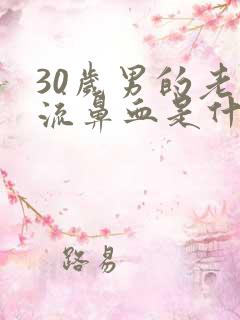 30歲男的老
流鼻血是什
路易